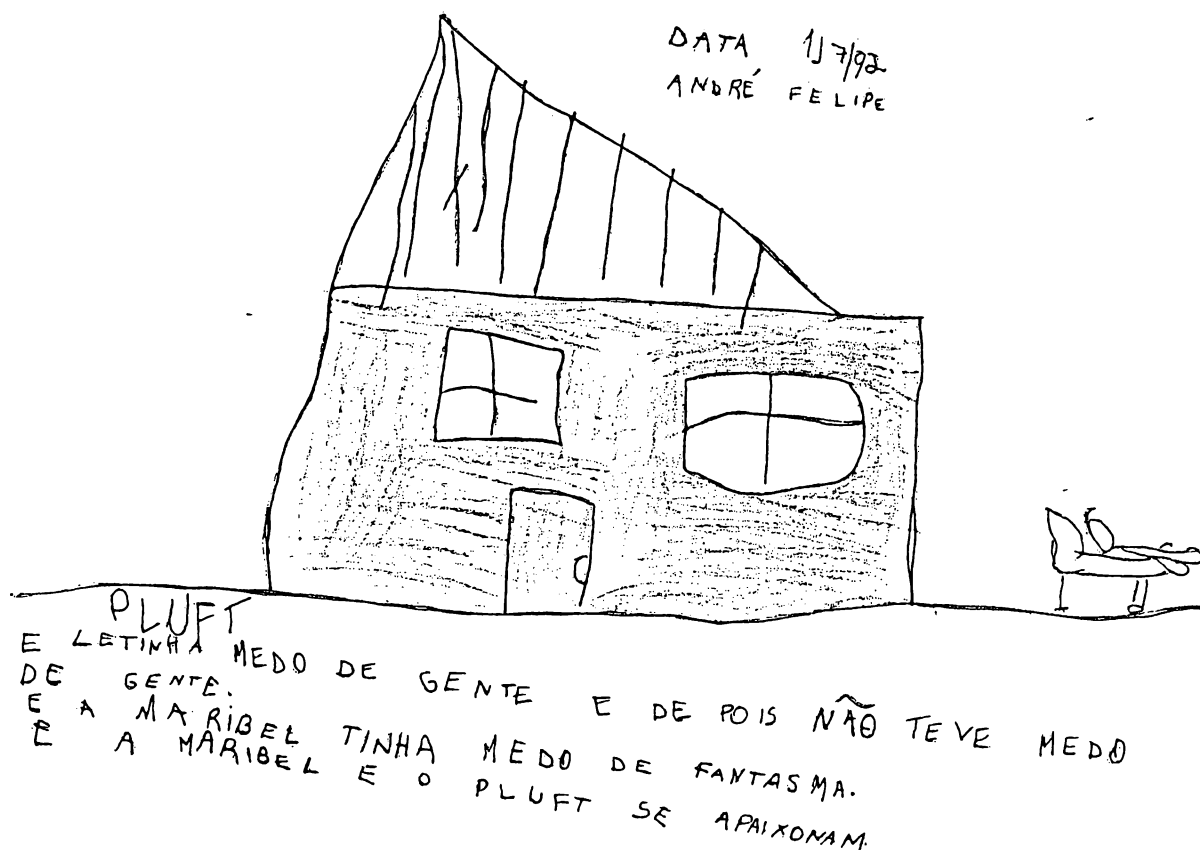 DATA 1/7/92
ANDRÉ FELIPE
PLUFT
E LETINHA MEDO DE GENTE E DE POIS NÃO TEVE MEDO
DE GENTE.
E A MARIBEL TINHA MEDO DE FANTASMA.
E A MARIBEL E O PLUFT SE APAIXONAM.